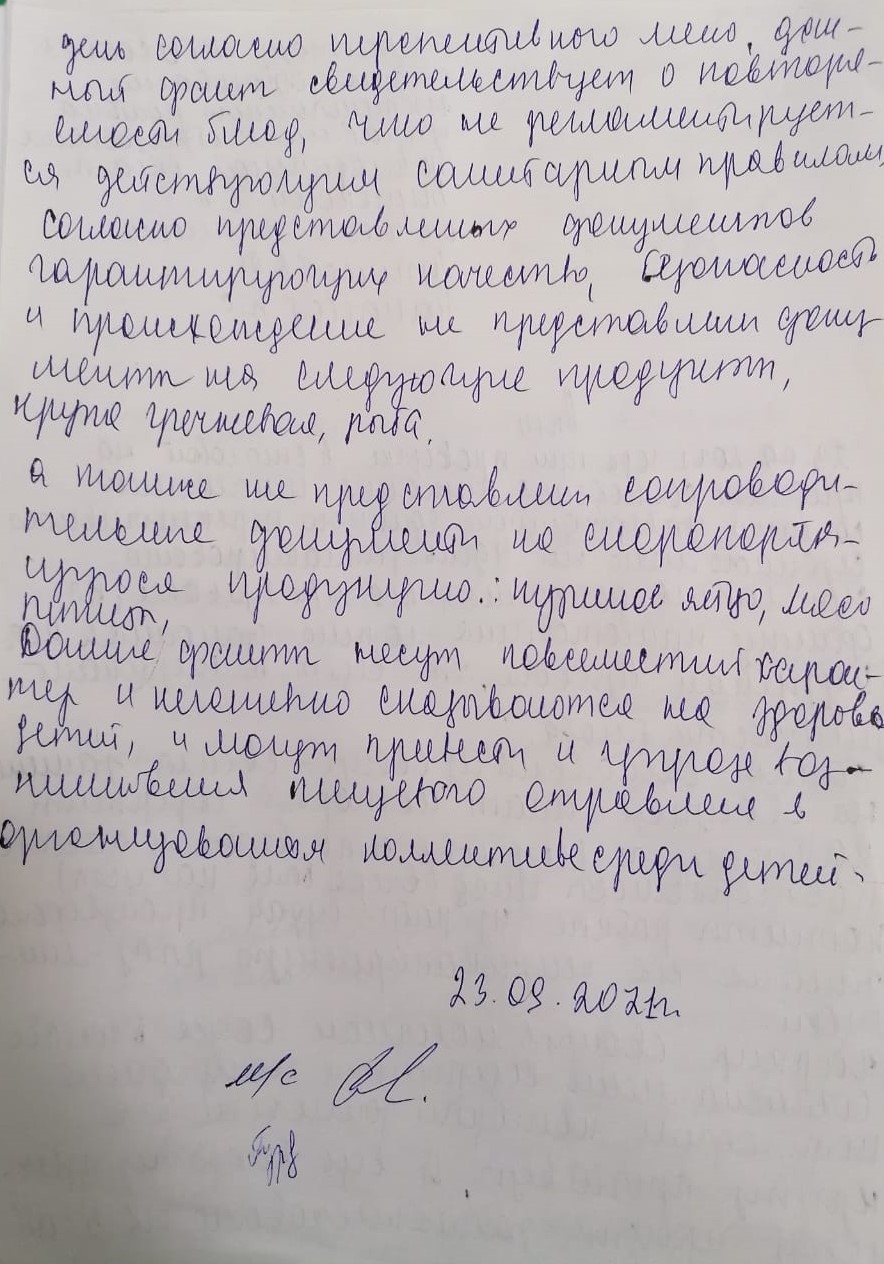 день согласно перспективного меню, дан-
ный факт свидетельствует о повторя-
емости блюд, что не регламентирует-
ся действующим санитарным правилам,
согласно представленных документов
гарантирующих качество, безопасность
и происхождение не представлен доку
менты на следующие продукты,
крупа гречневая, рыба,
а также не представлен сопроводи-
тельные документы на скоропортя-
щуюся продукцию.: куриное яйцо, мясо
птицы,
Данные факты несут повсеместный харак-
тер и негативно сказываются на здоровь
детей, и могут привести к угрозе воз-
никновения пищевого отравления в
организованном коллективе среди детей.
23.09.2021г.
м/с